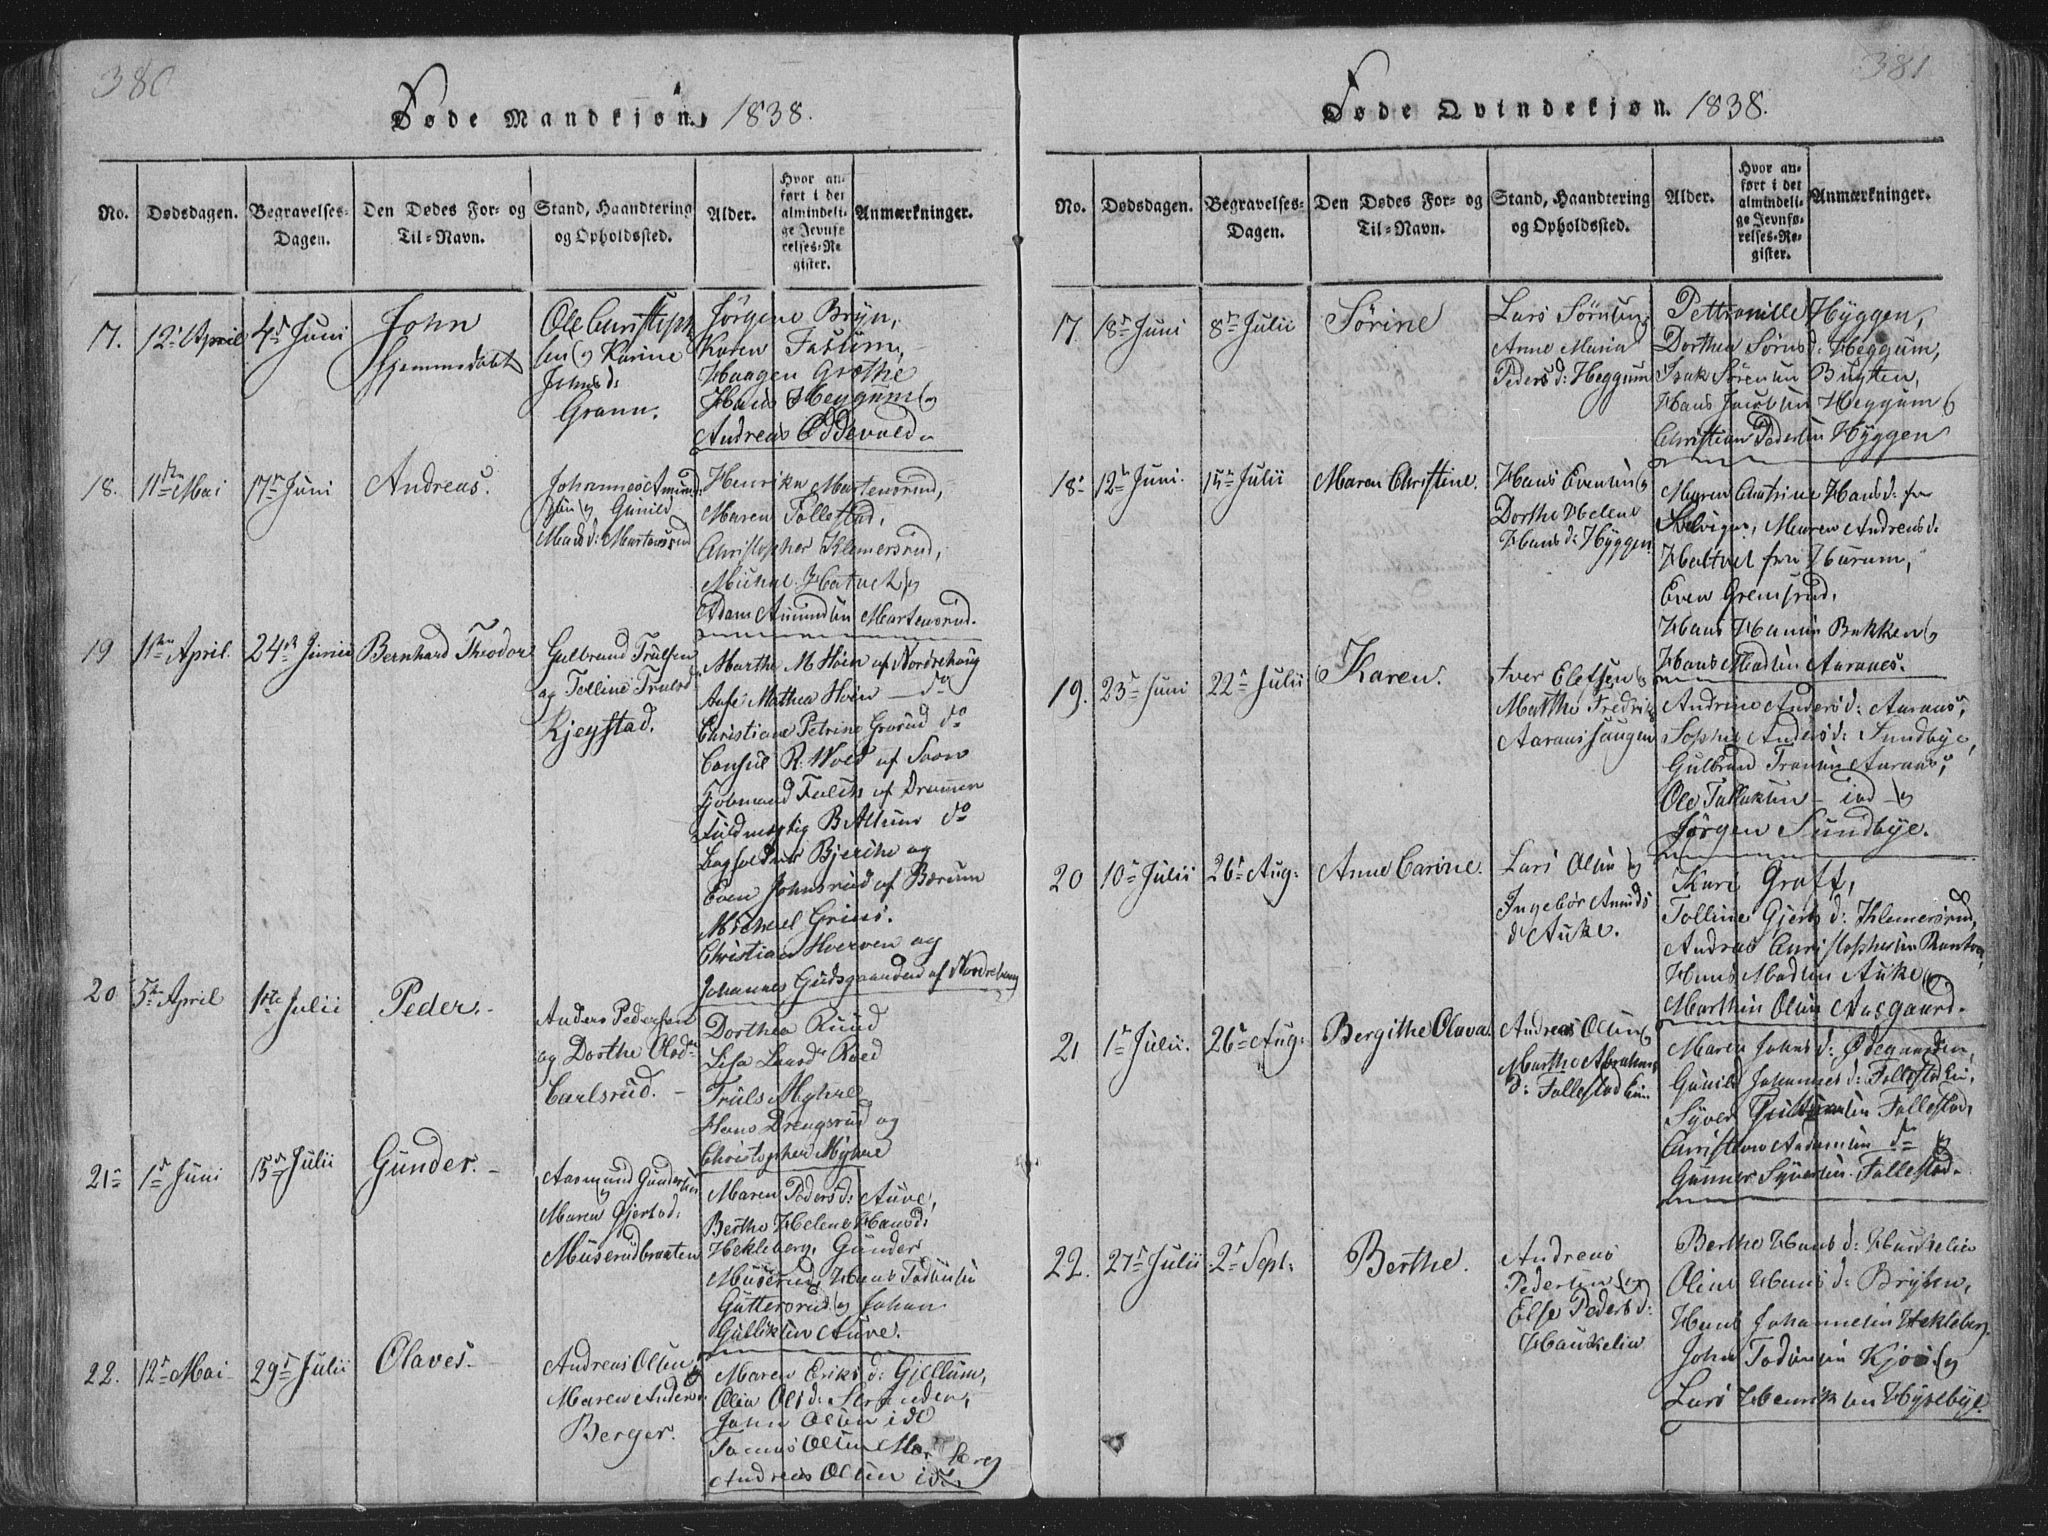 380
Døde Mandkjøn. 1838.
No.
Dødsdagen.
Begravelses-
Dagen.
Den Dødes For- og
Til-Navn.
Stand, Haandtering
og Opholdssted.
Alder.
Hvor an-
ført i det
almindeli-
ge Jevnfø-
relses-Re-
gister.
Anmærkninger.
17.
12te April
4de Juni
John
Hjemmedøbt
Ole Christoph
sen og Karine
Johnsd:
Grann.
Jørgene Bryn,
Karen
Haagen Grøthe
Hans Heggum og
Andreas Oddevald.
18.
11te Mai
17de Juni
Andreas.
Johannes Amund
sen og Gunild
Madsd: Martensrud
Henrike Martensrud,
Maren Follestad,
Christopher Klemersrud,
Michael Hatvet og
Adam Amundsen Martensrud.
19
1ste April.
24de Junii
Bernhard Theodor
Gulbrand Trulsen
og Tolline Trulsd
Kjeystad.
Marthe M Hoin af Norderhoug
Mathea Hoin do
Christiane Petrine Grørud do
Consul R. Wold af Soon
Fuldmægtig B do
Bjerche og
Even Johnsrud af Bærum
Michael Grini.
Christian Hverven og
Johannes Gudsgaarden af Norderhoug
20
5te April
1ste Julii
Peder.
Anders Pedersen
og Dorthe Olsdr
Carlsrud.
Dorthea Ruud
Lisa Larsdr Røed
Truls Myhre
Hans Drengsrud og
Christopher Myhre
21
1ste Juni
15de Julii
Gunder.
Aasmund Gundersen
og
Maren Gjertsd:
Muserudbraaten
Maren Pedersd: Auve,
Berthe Helene Hansd:
Hekleberg, Gunder
Muserud, Hans Todensen
Guttersrud og Johan
Gulliksen Auve.
22.
12te Mai
29de Julii
Olaves.
Andreas Olsen
og
Maren Andersd:
Berger.
Maren Eriksd: Gjellum,
Olia Olsd: Stranden,
John Olsen ibd
Tomas Olsen
Andreas Olsen ibd.
381
Døde Qvindekjøn. 1838.
No.
Dødsdagen.
Begravelses-
Dagen.
Den Dødes For- og
Til-Navn.
Stand, Haandtering
og Opholdssted.
Alder.
Hvor an-
ført i det
almindeli-
ge Jevnfø-
relses-Re-
gister.
Anmærkninger.
17.
18de Juni
8de Julii
Sørine
Lars Sørnsen,
Anne Maria
Pedersd: Heggum
Pettronille Hyggen,
Dorthea Sørnsd: Heggum,
Isak Sørensen Bugten,
Hans Jacobsen Heggum og
Christian Pedersen Hyggen
18.
12te Juni.
15de Julii
Maren Christine.
Hans Evensen og
Dorthe Helene
Hansd: Hyggen
Maren Cathrine Hansd: fra
Selvigen, Maren Andreasd:
Hattvet fra Hurum,
Even Gremsrud,
Hans Hansen Bakken og
Hans Madsen Aaranes.
19.
23de Juni
22de Julii
Karen.
Iver Elefsen og
Marthe Fredriksd
Aaraassaugen
Andrine Andersd: Aaraas,
Sophie Andersd: Sundbye,
Gulbrand Fransen Aaraas,
Ole Tollaksen ibd og
Jørgen Sundbye.
20
10de Julii
26de Aug:
Anne Carine.
Lars Olsen og
Ingebor Amunds
d: Auke.
Kari Graff,
Tolline Gjertsd: Klemersrud,
Andreas Christophersen
Hans Madsen Auke og
Marthin Olsen Aasgaard.
21
1ste Julii.
26de Aug:
Bergithe Olava.
Andreas Olsen og
Marthe Abrahams
d: Follestadeie.
Maren Johnsd: Ødegaarden,
Gunild Johannesd: Follestadeie,
Syver Follestad,
Christen Andersen do og
Gunner Syversen Follestad.
22.
27de Julii
2den Sept:
Berthe.
Andreas
Pedersen og
Else Pedersd:
Haukelin
Berthe Hansd: Haukelin
Oline Hansd: Bråten,
Hans Johannesen Hekleberg,
John Todensen Kjos og
Lars Henriksen Hyslbye.